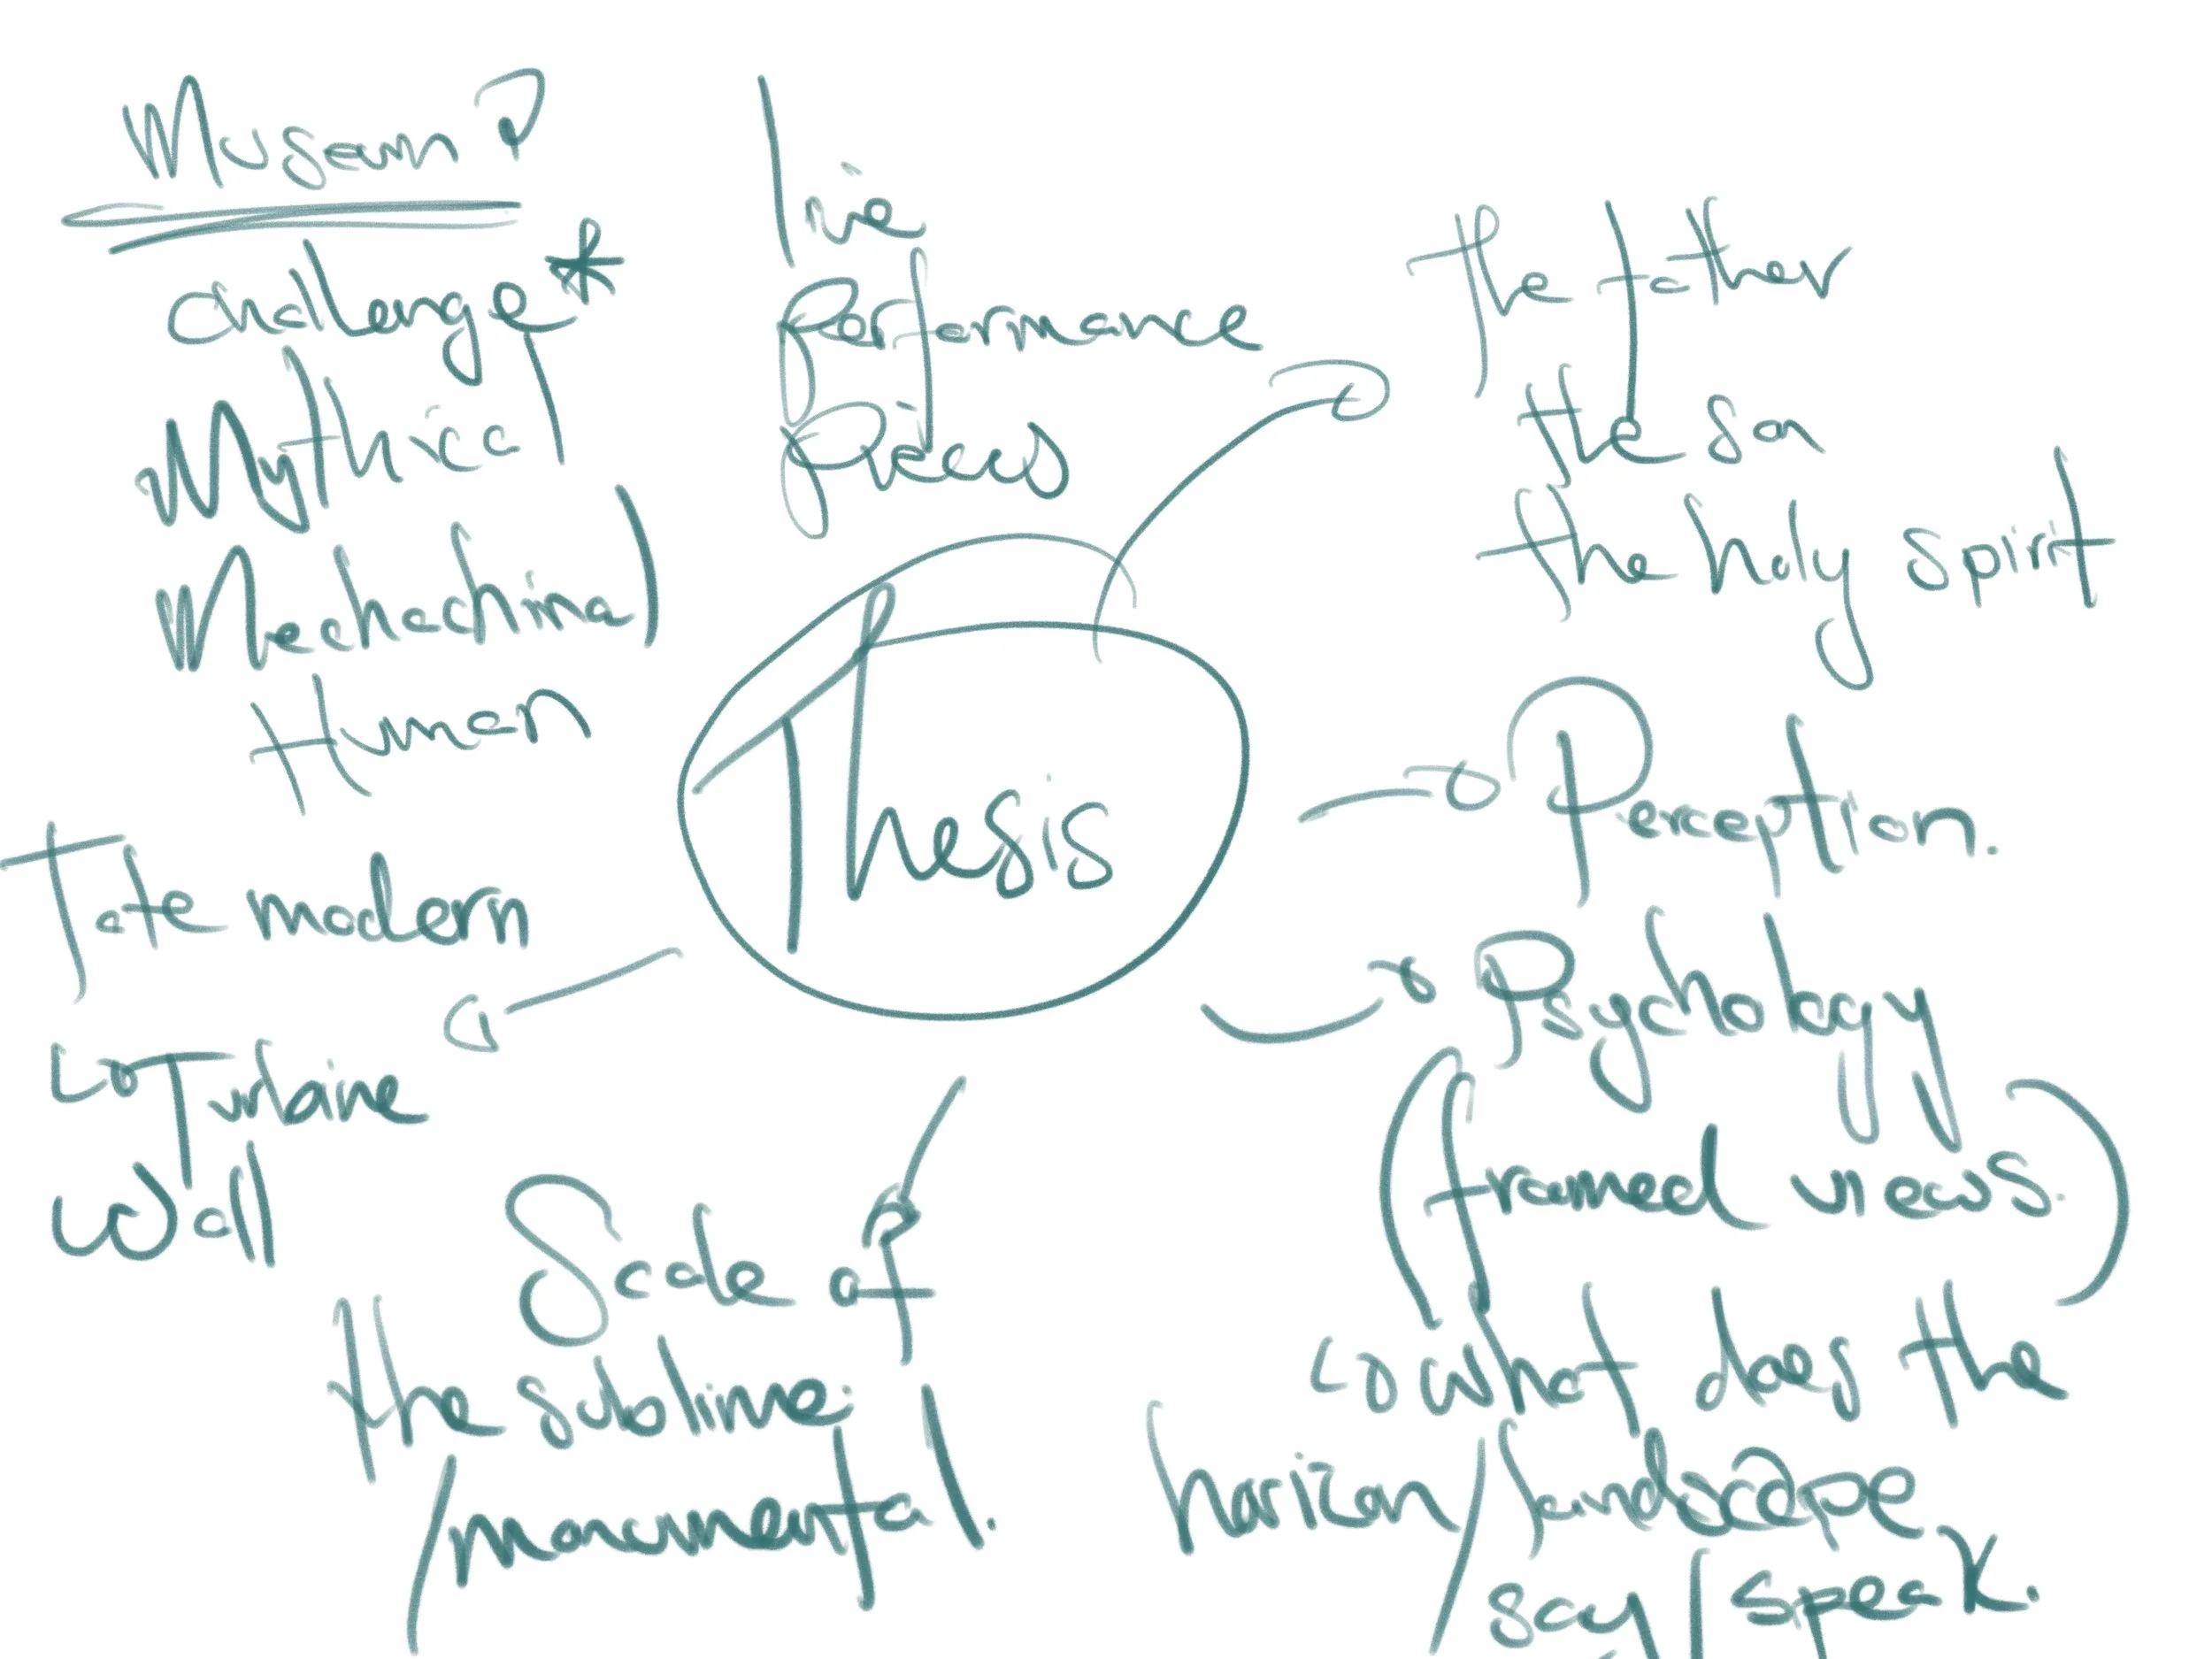 Museam?
challenge*
Mythical
Mechachinal
Human
live
Performance
Pieces
the father
the son
the holy spirit
Thesis
Perception.
Psychology
(framed views.)
what does the
horizon/landscape
say/speak.
Tate modern
Turbaine
Wall
Scale of
the sublime.
/monumental.